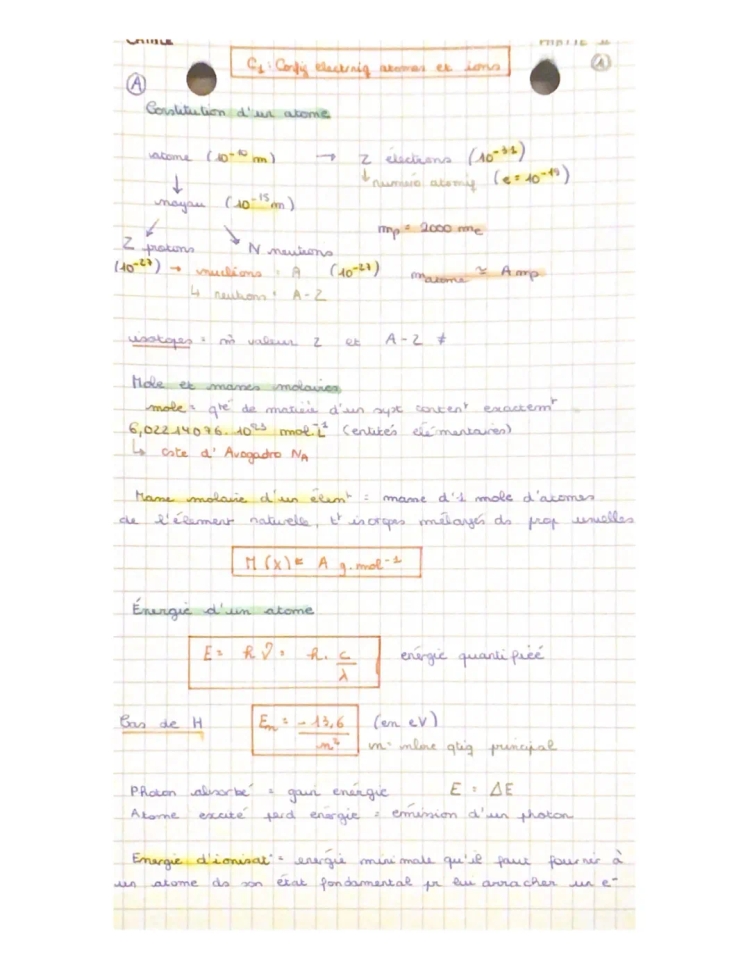 CHIMIE
C1 : Config électroniq atomes et ions
1
A
Constitution d'un atome
atome (10⁻¹⁰ m) → Z électrons (10⁻³¹)
↓ ↳ numéro atomiq (e = 10⁻¹⁹)
noyau (10⁻¹⁵ m)
mp = 2000 me
Z protons N neutrons
(10⁻²⁷) → nucléons : A (10⁻²⁷) matome ≃ A mp
↳ neutrons : A-Z
isotopes = m̂ valeur Z et A-Z ≠
Mole et masses molaires
mole = qté de matière d'un syst content exactemt
6,02214076.10²³ mol⁻¹ (entités élémentaires)
↳ cste d'Avogadro NA
Masse molaire d'un élémt = masse d'1 mole d'atomes
de l'élement naturelle, tt isotpes mélangés ds prop usuelles
M(X) = A g.mol⁻¹
Énergie d'un atome
E = hν = h. c/λ énergie quantifiée
Cas de H En = -13,6/n² (en eV)
n = nbre qtiq principal
Photon absorbé = gain énergie E = ΔE
Atome excité perd energie = émission d'un photon
Energie d'ionisat° = energie minimale qu'il faut fournir à
un atome ds son état fondamental pr lui arracher un e⁻